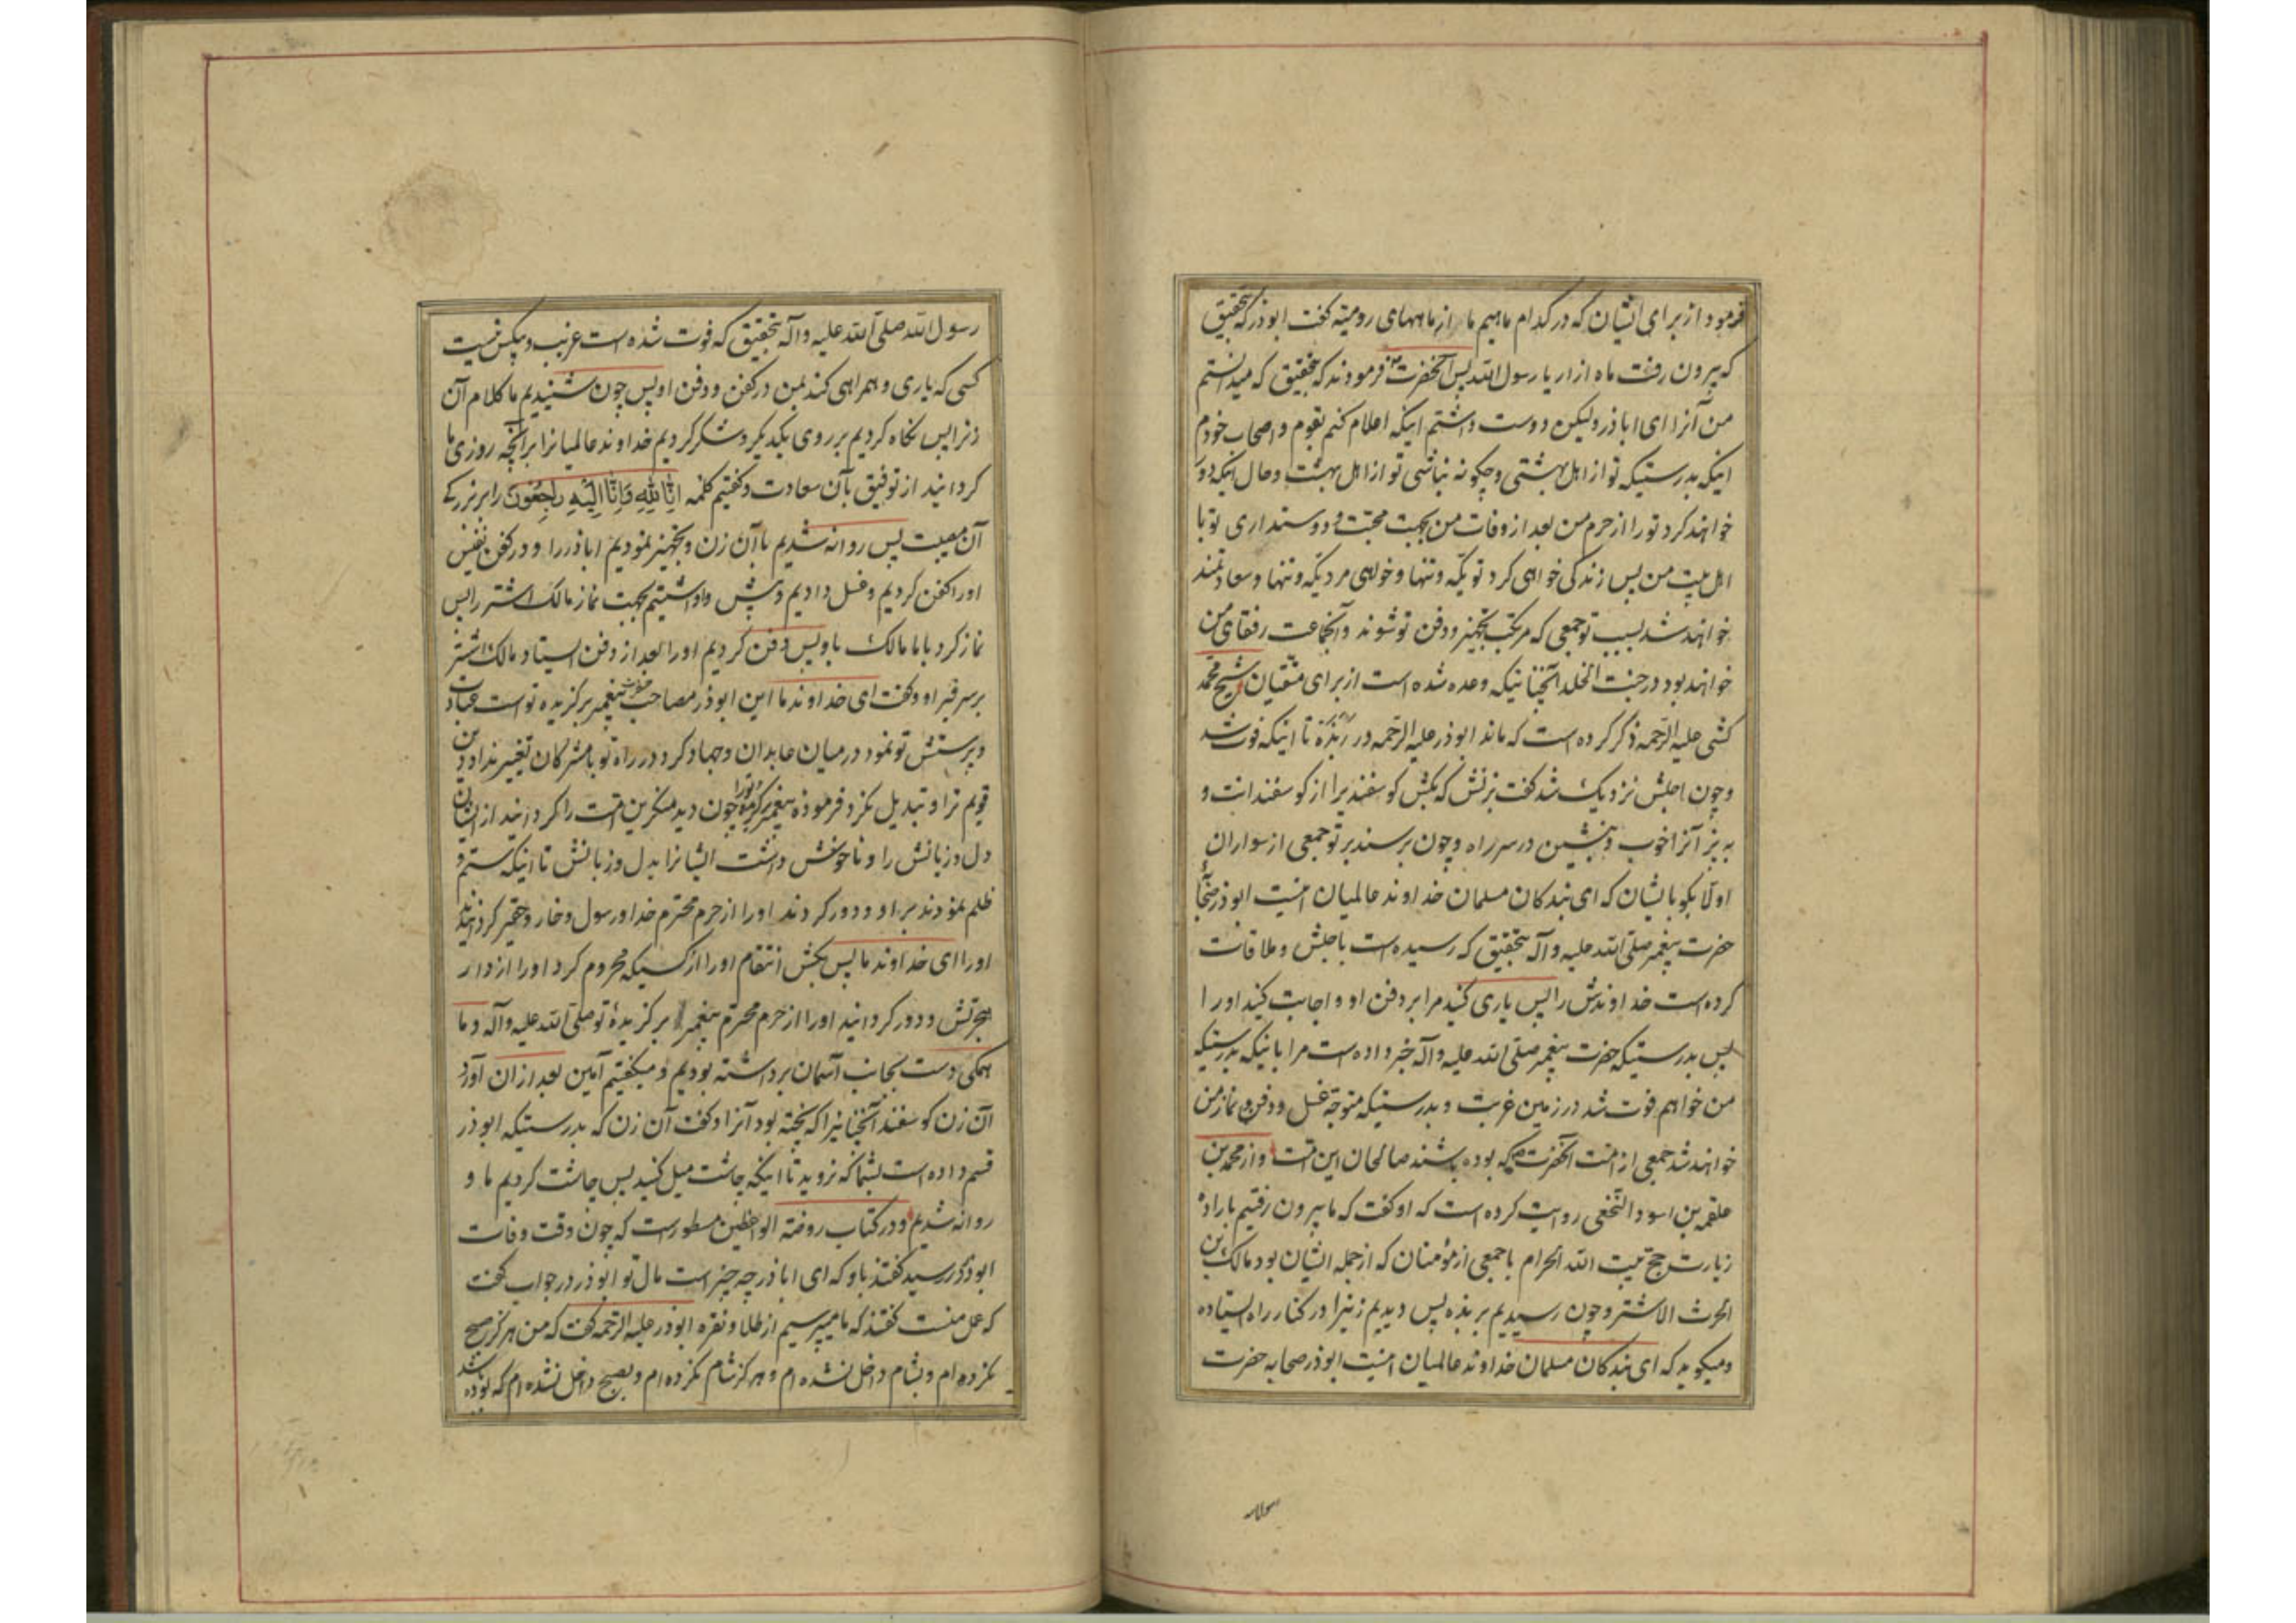 فرمود از برای ایشان که در کدام ماهیم ما از ماههای رومیّه گفت ابوذر که بتحقیق
که بیرون رفت ماه ازار یا رسول الله پس آنحضرت فرمودند که بتحقیق که میدانستم
من آنرا ای اباذر ولیکن دوست داشتم اینکه اعلام کنم بقوم و اصحاب خودم
اینکه بدرستیکه تو از اهل بهشتی و چگونه نباشی تو از اهل بهشت و حال اینکه دور
خواهند کرد تو را از حرم من بعد از وفات من بجهت محبّت و دوستداری تو با
اهل بیت من پس زندگی خواهی کرد تو یکّه و تنها و خواهی مرد یکّه و تنها و سعادتمند
خواهند شد بسبب تو جمعی که مرتکب تجهیز و دفن تو شوند و آنجماعت رفقای من
خواهند بود در جنت الخلد آنچنانیکه وعده شده است از برای متّقیان شیخ محمّد
کشی علیه الرّحمه ذکر کرده است که ماند ابوذر علیه الرّحمه در ربذه تا اینکه فوت شد
و چون اجلش نزدیک شد گفت بزنش که بکش گوسفندیرا از گوسفندانت و
به پز آنرا خوب و بنشین در سر راه و چون برسند بر تو جمعی از سواران
اولا بگو بایشان که ای بندکان مسلمان خداوند عالمیان اینست ابوذر صحابهٔ
حضرت پیغمبر صلّی الله علیه و آله بتحقیق که رسیده است باجلش و ملاقات
کرده است خداوندش را پس یاری کنید مرا بر دفن او و اجابت کنید او را
پس بدرستیکه حضرت پیغمبر صلّی الله علیه و آله خبر داده است مرا باینکه بدرستیکه
من خواهم فوت شد در زمین غربت و بدرستیکه متوجّه غسل و دفن و نماز من
خواهند شد جمعی از امّت آنحضرت که بوده باشند صالحان این امّت و از محمّد بن
علقمه بن اسود النّخعی روایت کرده است که او گفت که ما بیرون رفتیم بارادهٔ
زیارت حجّ بیت الله الحرام با جمعی از مؤمنان که از جمله ایشان بود مالک بن
الحرث الاشتر و چون رسیدیم بربذه پس دیدیم زنیرا در کنار راه ایستاده
و میگوید که ای بندکان مسلمان خداوند عالمیان اینست ابوذر صحابه حضرت
رسول الله صلّی الله علیه و آله بتحقیق که فوت شده است غریب و بیکس نیست
کسی که یاری و همراهی کند بمن در کفن و دفن او پس چون شنیدیم ما کلام آن
زنرا پس نگاه کردیم بر روی یکدیگر و شکر کردیم خداوند عالمیانرا برآنچه روزی ما
کردانید از توفیق بآن سعادت و گفتیم کلمه اِنّا لِلّهِ وَاِنّا اِلَیْهِ راجِعُونَ را بر بزرکی
آن مصیبت پس روانه شدیم با آن زن و تجهیز نمودیم اباذر را و در کفن نفیس
او را کفن کردیم و غسل دادیم و پیش واداشتیم بجهت نماز مالک اشتر را پس
نماز کرد با ما مالک باو پس دفن کردیم او را بعد از دفن ایستاد مالک اشتر
بر سر قبر او و گفت ای خداوند ما این ابوذر مصاحب حضرت پیغمبر برگزیده تو است عبادت
و پرستش تو نمود در میان عابدان و جهاد کرد در راه تو با مشرکان تغییر نداد دین
قویم ترا و تبدیل نکرد فرموده پیغمبر تو را چون دید منکرین امّت را کردانید از ایشان
دل و زبانش را و ناخوش داشت ایشانرا بدل و زبانش تا اینکه ستم و
ظلم نمودند بر او و دور کردند او را از حرم محترم خدا و رسول و خار و حقیر کردانیدند
او را ای خداوند ما پس بکش انتقام او را از کسیکه محروم کرد او را از دار
هجرتش و دور کردانید او را از حرم محترم پیغمبر برگزیدهٔ تو صلّی الله علیه و آله و ما
همگی دست بجانب آسمان برداشته بودیم و میگفتیم آمین بعد از ان آورد
آن زن گوسفند آنچنانیرا که پخته بود آنرا و گفت آن زن که بدرستیکه ابوذر
قسم داده است بشما که نروید تا اینکه چاشت میل کنید پس چاشت کردیم ما و
روانه شدیم و در کتاب روضة الواعظین مسطور است که چون وقت وفات
ابوذر رسید گفتند باو که ای اباذر چه چیز است مال تو ابوذر در جواب گفت
که عمل منست گفتند که ما میپرسیم از طلا و نقره ابوذر علیه الرّحمه گفت که من هرگز صبح
نکرده ام و بشام داخل نشده ام و هرگز شام نکرده ام و بصبح داخل نشده ام که بوده باشد